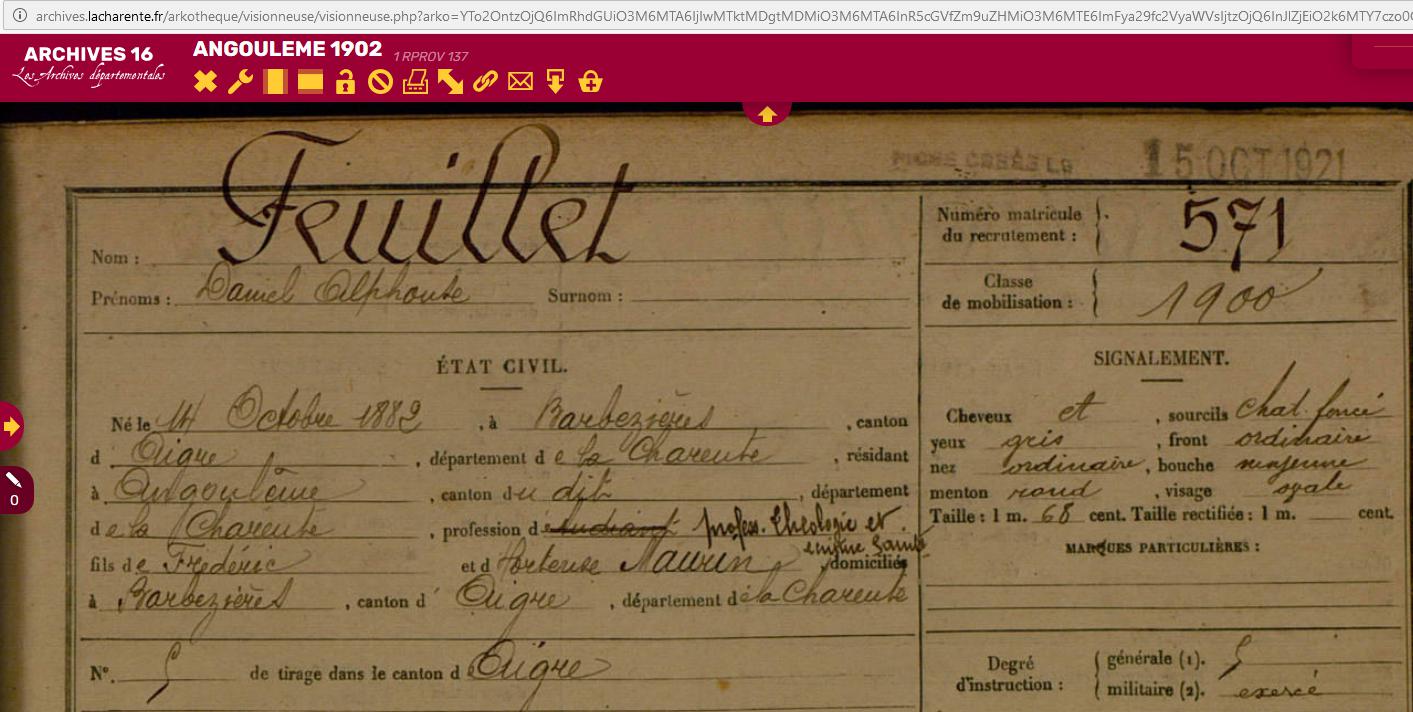 archives.lacharente.fr/arkotheque/visionneuse/visionneuse.php?arko=
ARCHIVES 16
Les Archives départementales
ANGOULEME 1902 1 RPROV 137
15 OCT 1921
Feuillet
Nom :
Prénoms : Daniel Alphonse Surnom :
Numéro matricule
du recrutement : 571
Classe
de mobilisation : 1900
ÉTAT CIVIL.
Né le 14 Octobre 1882, à Barbezières, canton
d Aigre, département de la Charente, résidant
à Angoulême, canton du dit, département
de la Charente, profession d étudiant profess. théologie et
fils de Frédéric et d Hortense Maurin domiciliés
à Barbezières, canton d' Aigre, département de la Charente
N° 5 de tirage dans le canton d Aigre
SIGNALEMENT.
Cheveux et, sourcils chat. foncé
yeux gris, front ordinaire
nez ordinaire, bouche moyenne
menton rond, visage ovale
Taille : 1 m. 68 cent. Taille rectifiée : 1 m. cent.
MARQUES PARTICULIÈRES :
Degré
d'instruction :
générale (1). 5
militaire (2). exercé
0